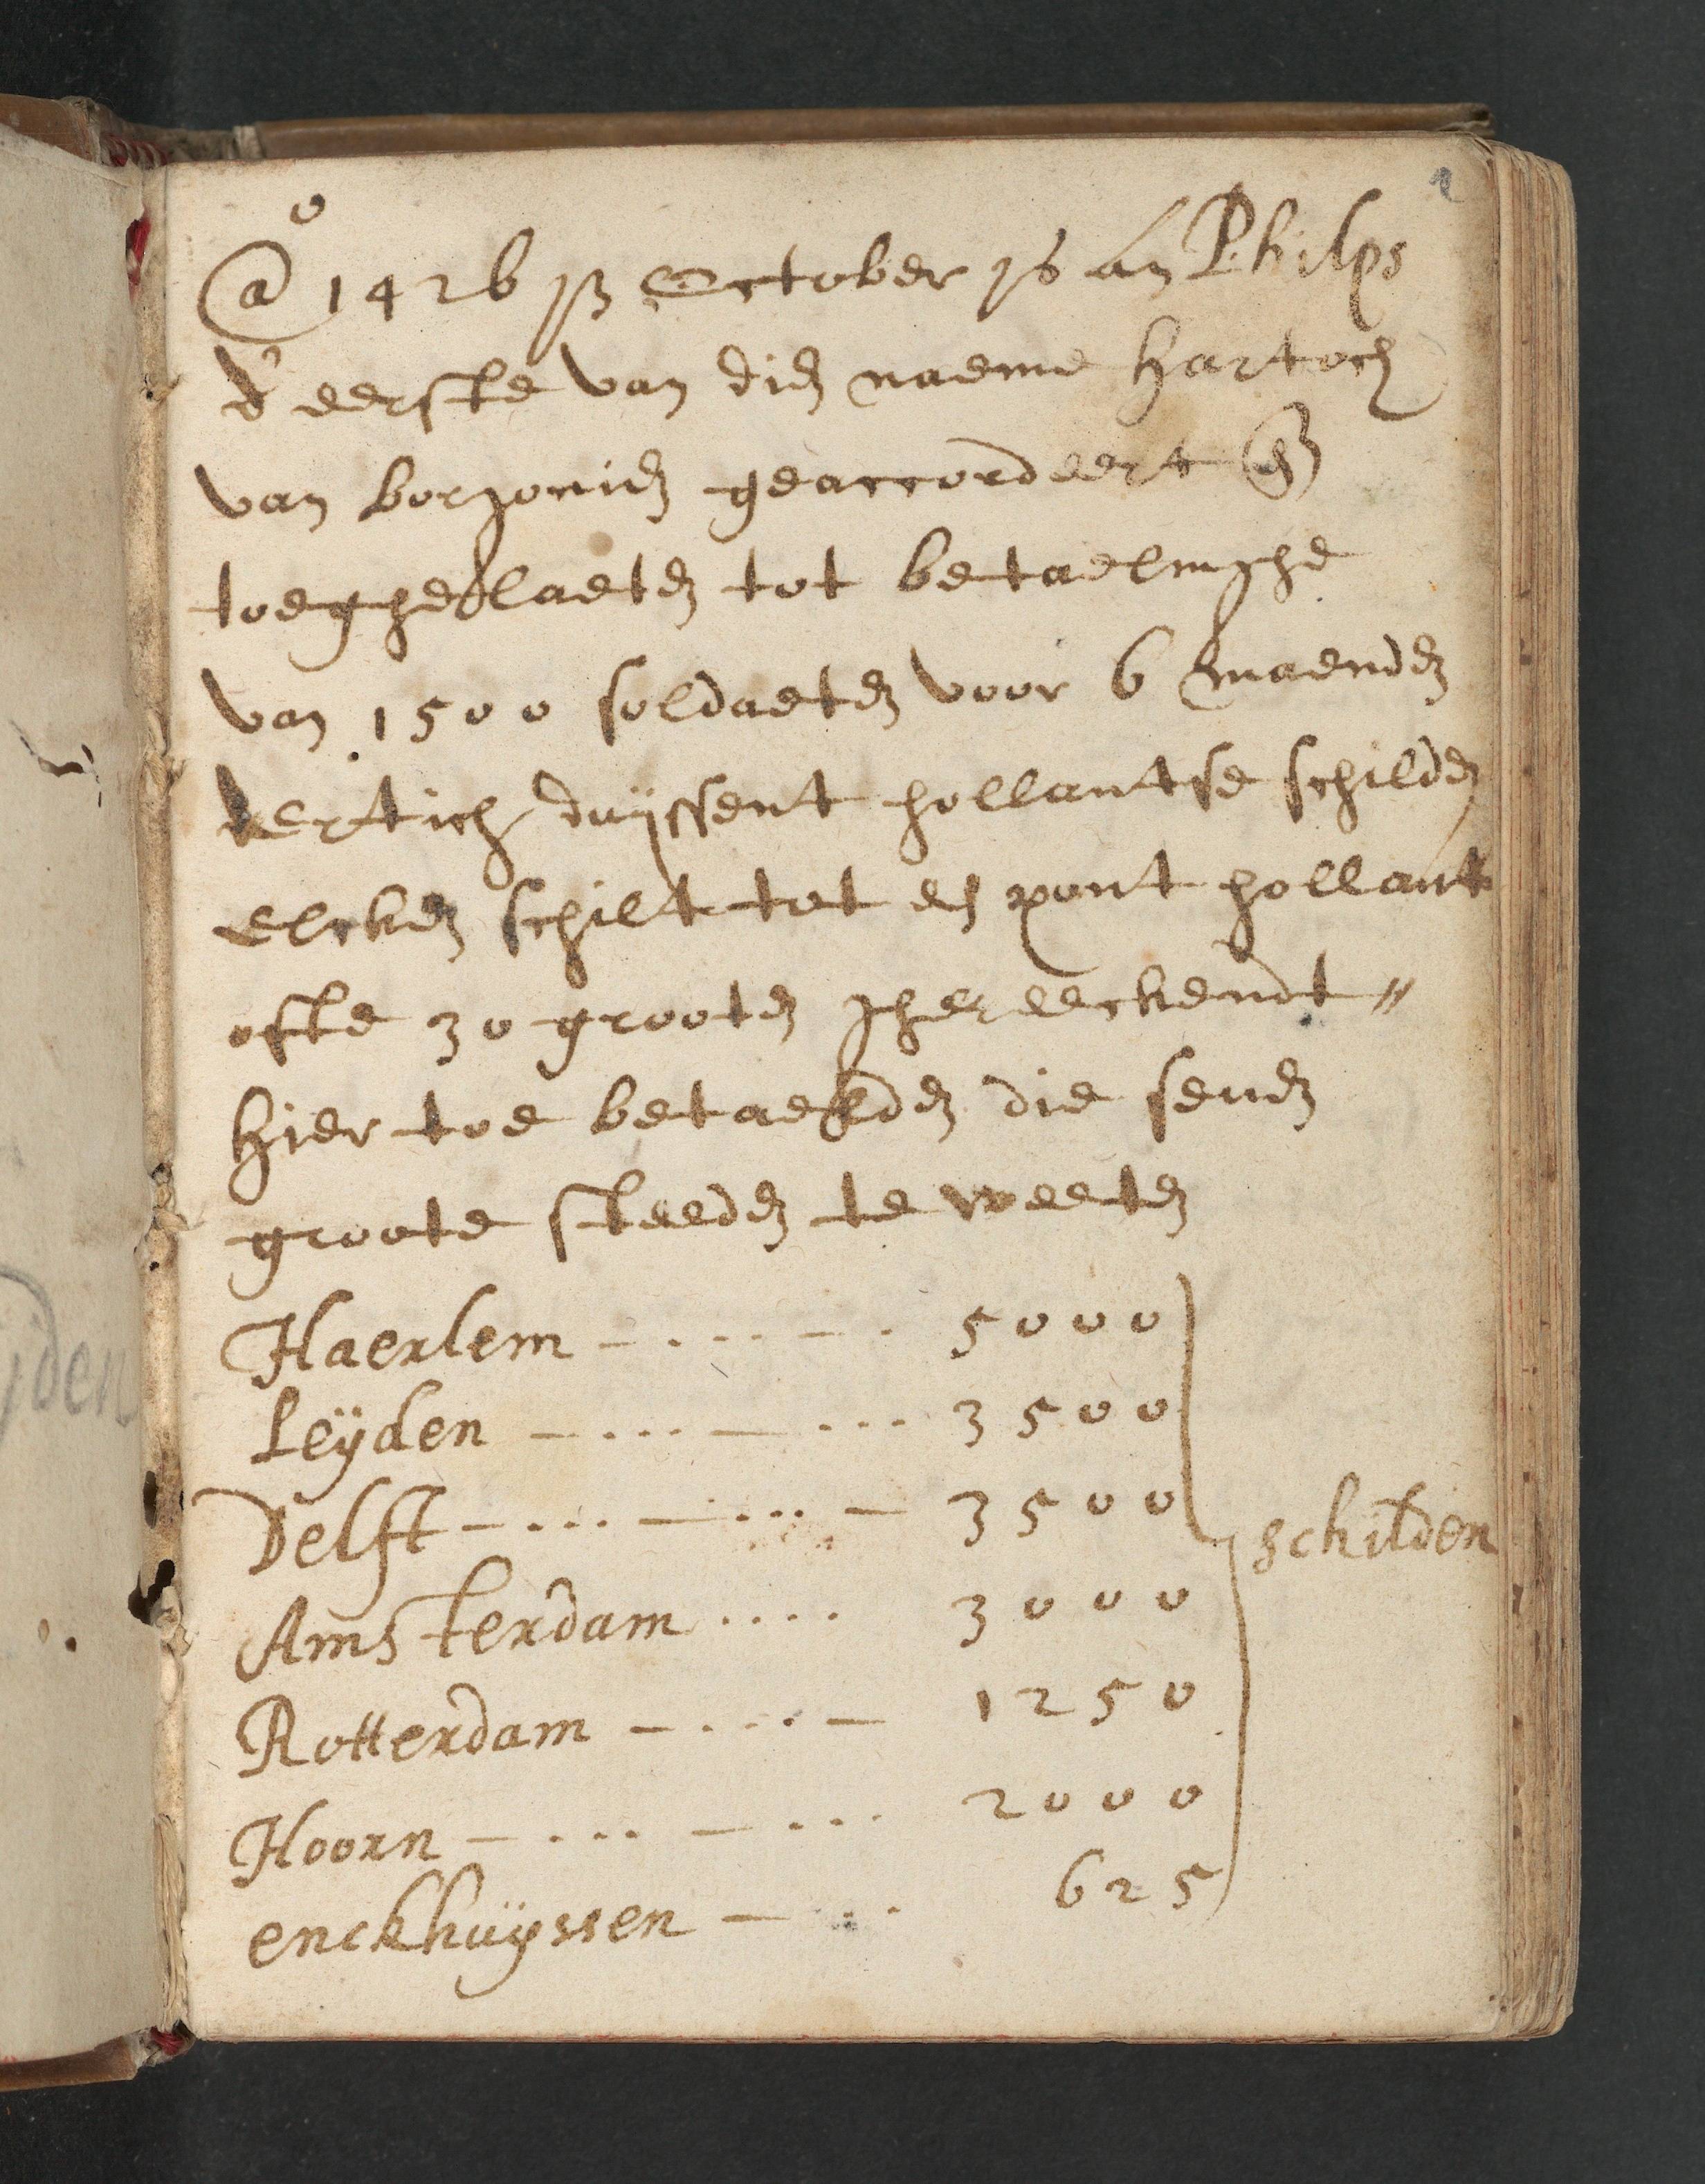 1
@o 1426 13 October is an Philps
d' eerste van dien naeme Hartoch
van borjonien geaccordeert en
toeghelaeten tot betaelinghe
van 1500 soldaeten voor 6 maenden
dertich duijssent hollantse schilden
elcken schilt tot een pont hollants
ofte 30 grooten ghereeckendt "
Hier toe betaelden die seuen
groote steeden te weeten
Haerlem - . . . . - . 5000
Leÿden - . . . . - . . . 3500
Delft - . . . - . . . - 3500
schilden
Amsterdam . . . . 3000
Rotterdam - . . . . - 1250
Hoorn - . . . - . . . 2000
enckhuÿssen - . . . 625
ijden